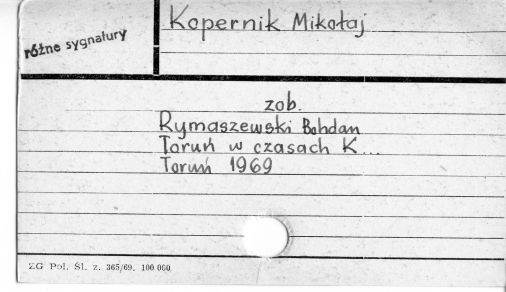 Kopernik Mikołaj
różne sygnatury
zob.
Rymaszewski Bohdan
Toruń w czasach K...
Toruń 1969
ZG Pol. Śl. z. 365/69. 100.000